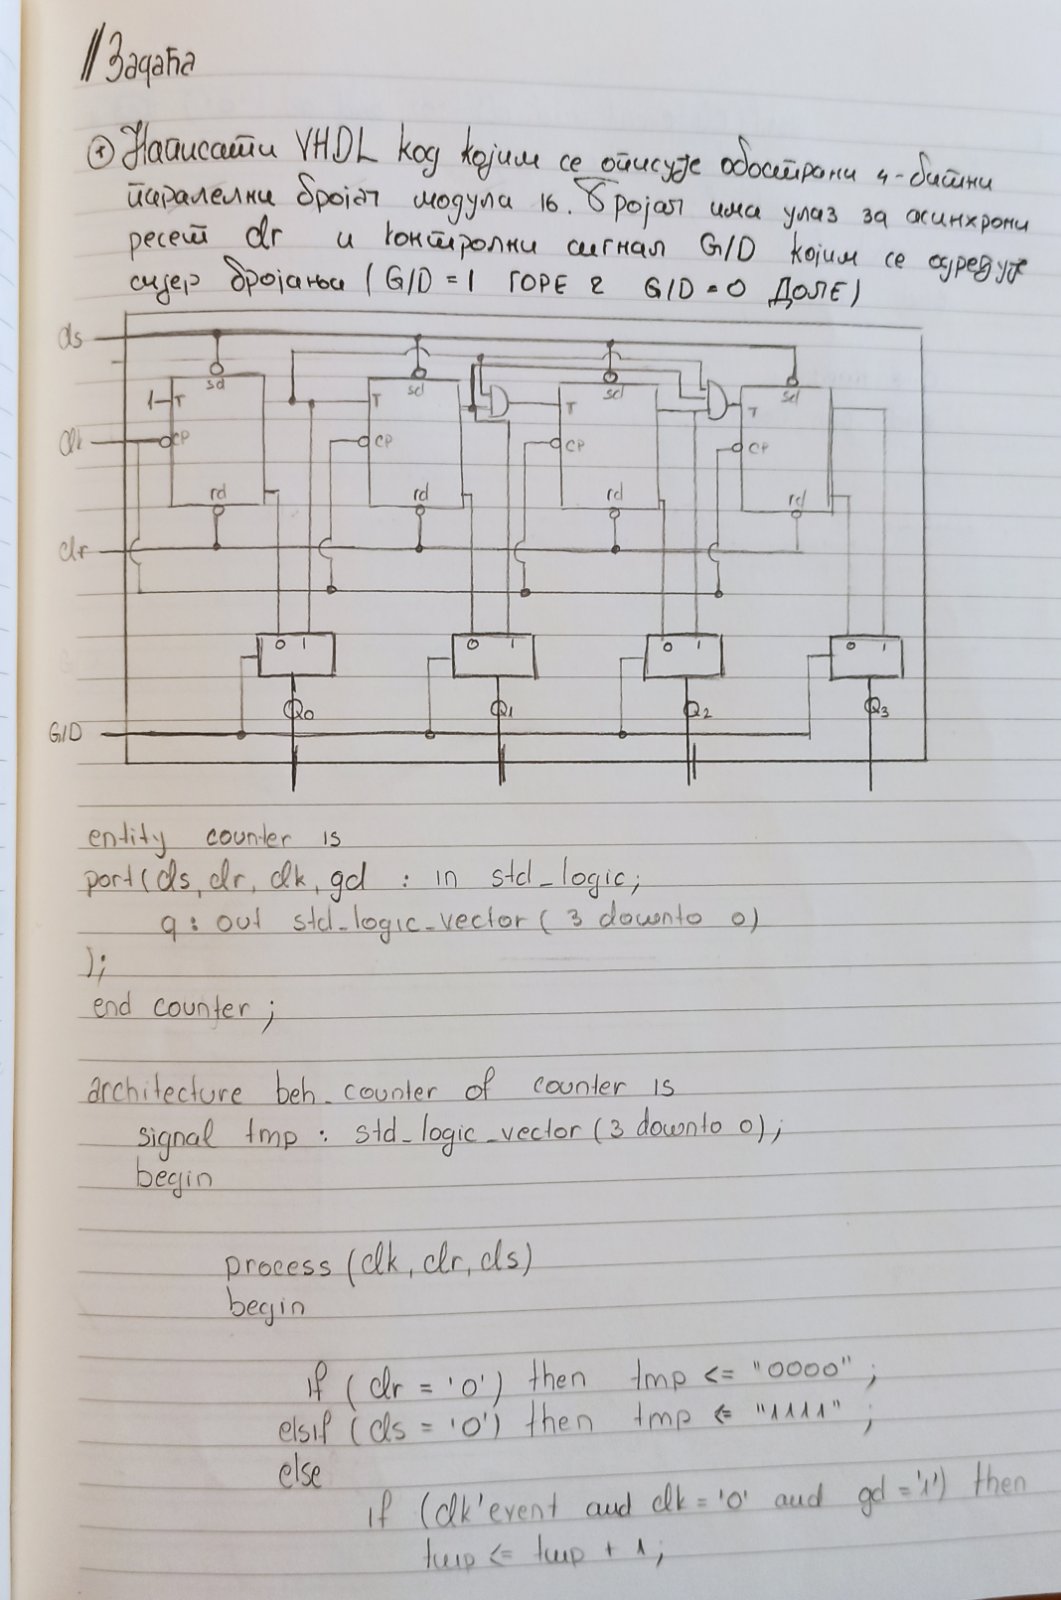 Задаћа
① Написати VHDL код којим се описује обострани 4-битни
паралелни бројач модула 16. Бројач има улаз за асинхрони
ресет clr и контролни сигнал G/D којим се одређује
смјер бројања (G/D = 1 ГОРЕ 2 G/D = 0 ДОЛЕ)
cls
sd sd sd sd
1 T T T T
clk CP CP CP CP
rd rd rd rd
clr
0 1 0 1 0 1 0 1
Q0 Q1 Q2 Q3
G/D
entity counter is
port(cls, clr, clk, gd : in std_logic;
q : out std_logic_vector ( 3 downto 0)
);
end counter ;
architecture beh_counter of counter is
signal tmp : std_logic_vector (3 downto 0);
begin
process (clk, clr, cls)
begin
if ( clr = '0') then tmp <= "0000" ;
elsif ( cls = '0') then tmp <= "1111" ;
else
if (clk'event and clk = '0' and gd = '1') then
tmp <= tmp + 1;